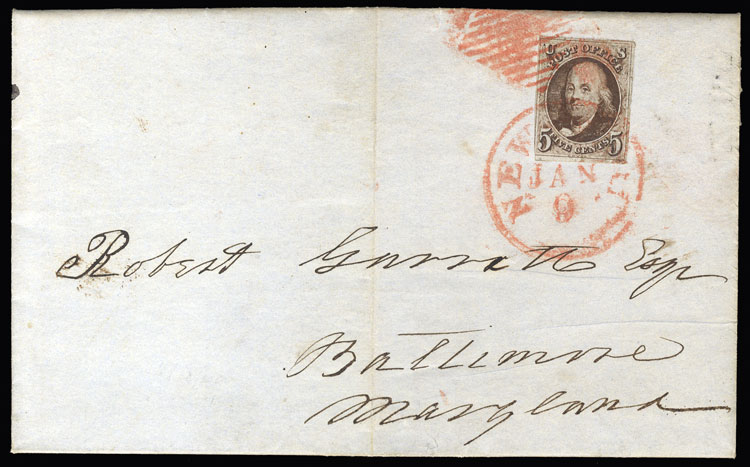 U S
POST OFFICE
5 FIVE CENTS 5
NEW
JAN
9
Robert Garrett Esqr
Baltimore
Maryland